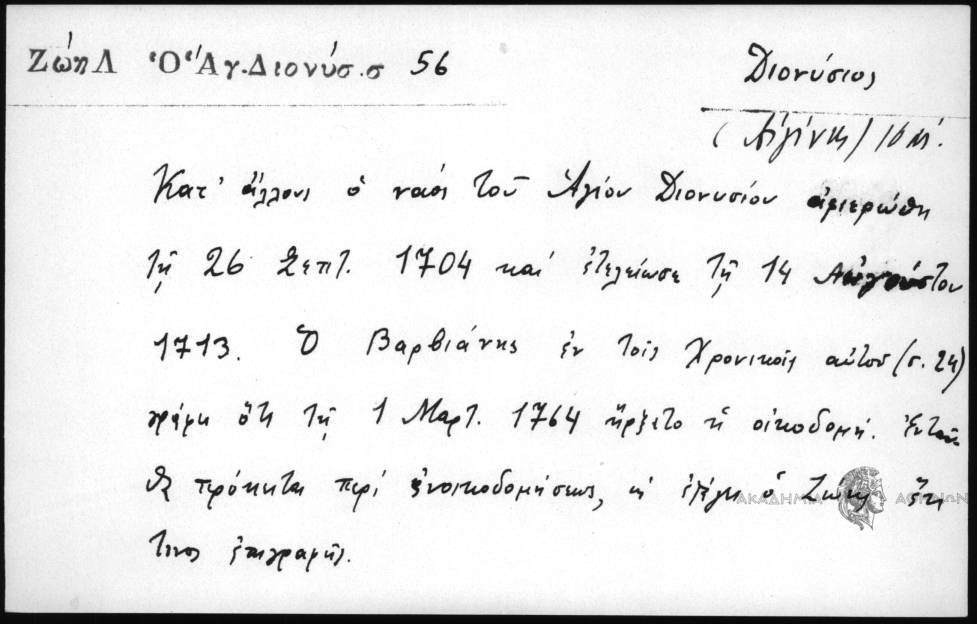 Ζώη Λ Ὁ Ἅγ. Διονύσ. σ 56
Διονύσιος
(Αἰγίνης)
Κατ' ἄλλους ὁ ναός τοῦ Ἁγίου Διονυσίου ἀφιερώθη
τῇ 26 Σεπτ. 1704 καί ἐτελείωσε τῇ 14 Αὐγούστου
1713. Ὁ Βαρβιάνης ἐν τοῖς Χρονικοῖς αὐτοῦ (σ. 24)
γράφει ὅτι τῇ 1 Μαρτ. 1764 ἤρξετο ἡ οἰκοδομή. Ἐνταῦ-
θα πρόκειται περί ἀνοικοδομήσεως, ὁ Ζώης
τινος ἐπιγραφῆς.
ΑΚΑΔΗΜΙΑ ΑΘΗΝΩΝ